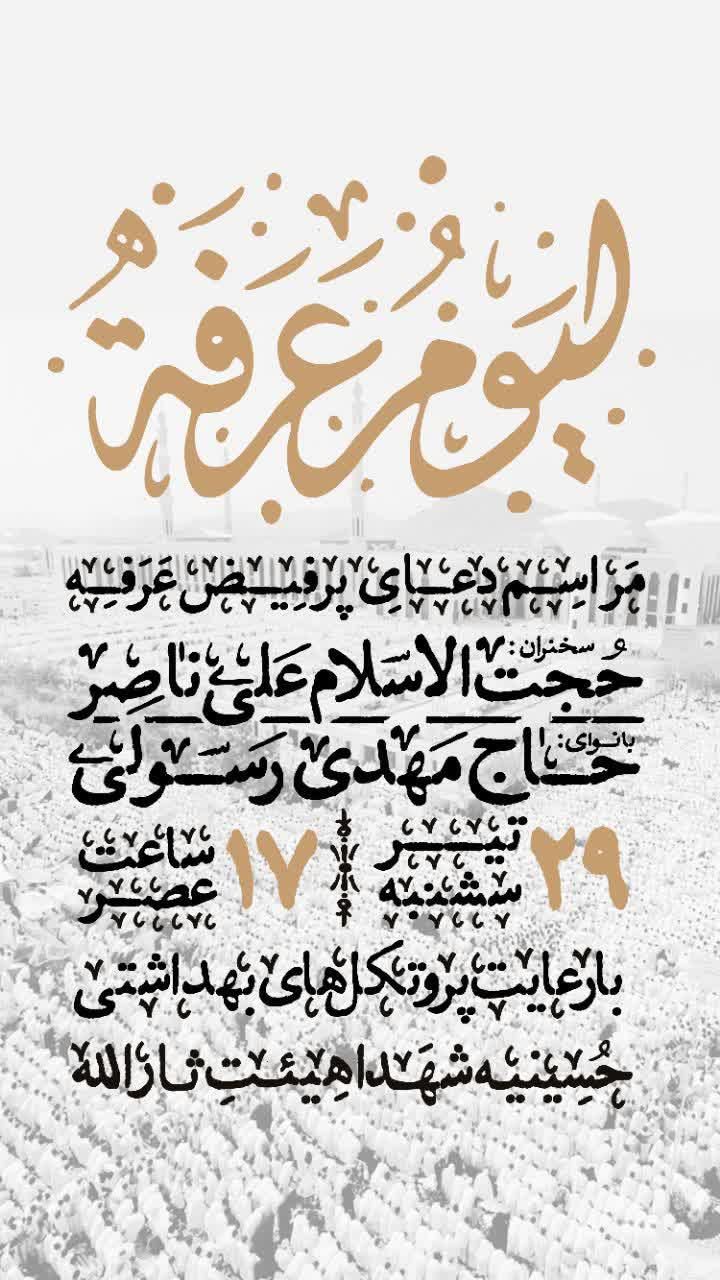 لیَوم عَرَفَة
مَراسِم دعایِ پرفِیض عَرَفِه
سخنران:
حُجت الاسلام عَلی ناصِر
بانوای:
حاج مَهدی رَسولی
۲۹ تیر سشنبه ۱۷ ساعت عصر
بارعایت پروتکل‌های بهداشتی
حُسِینیه شهَدا هِیئتِ ثارالله